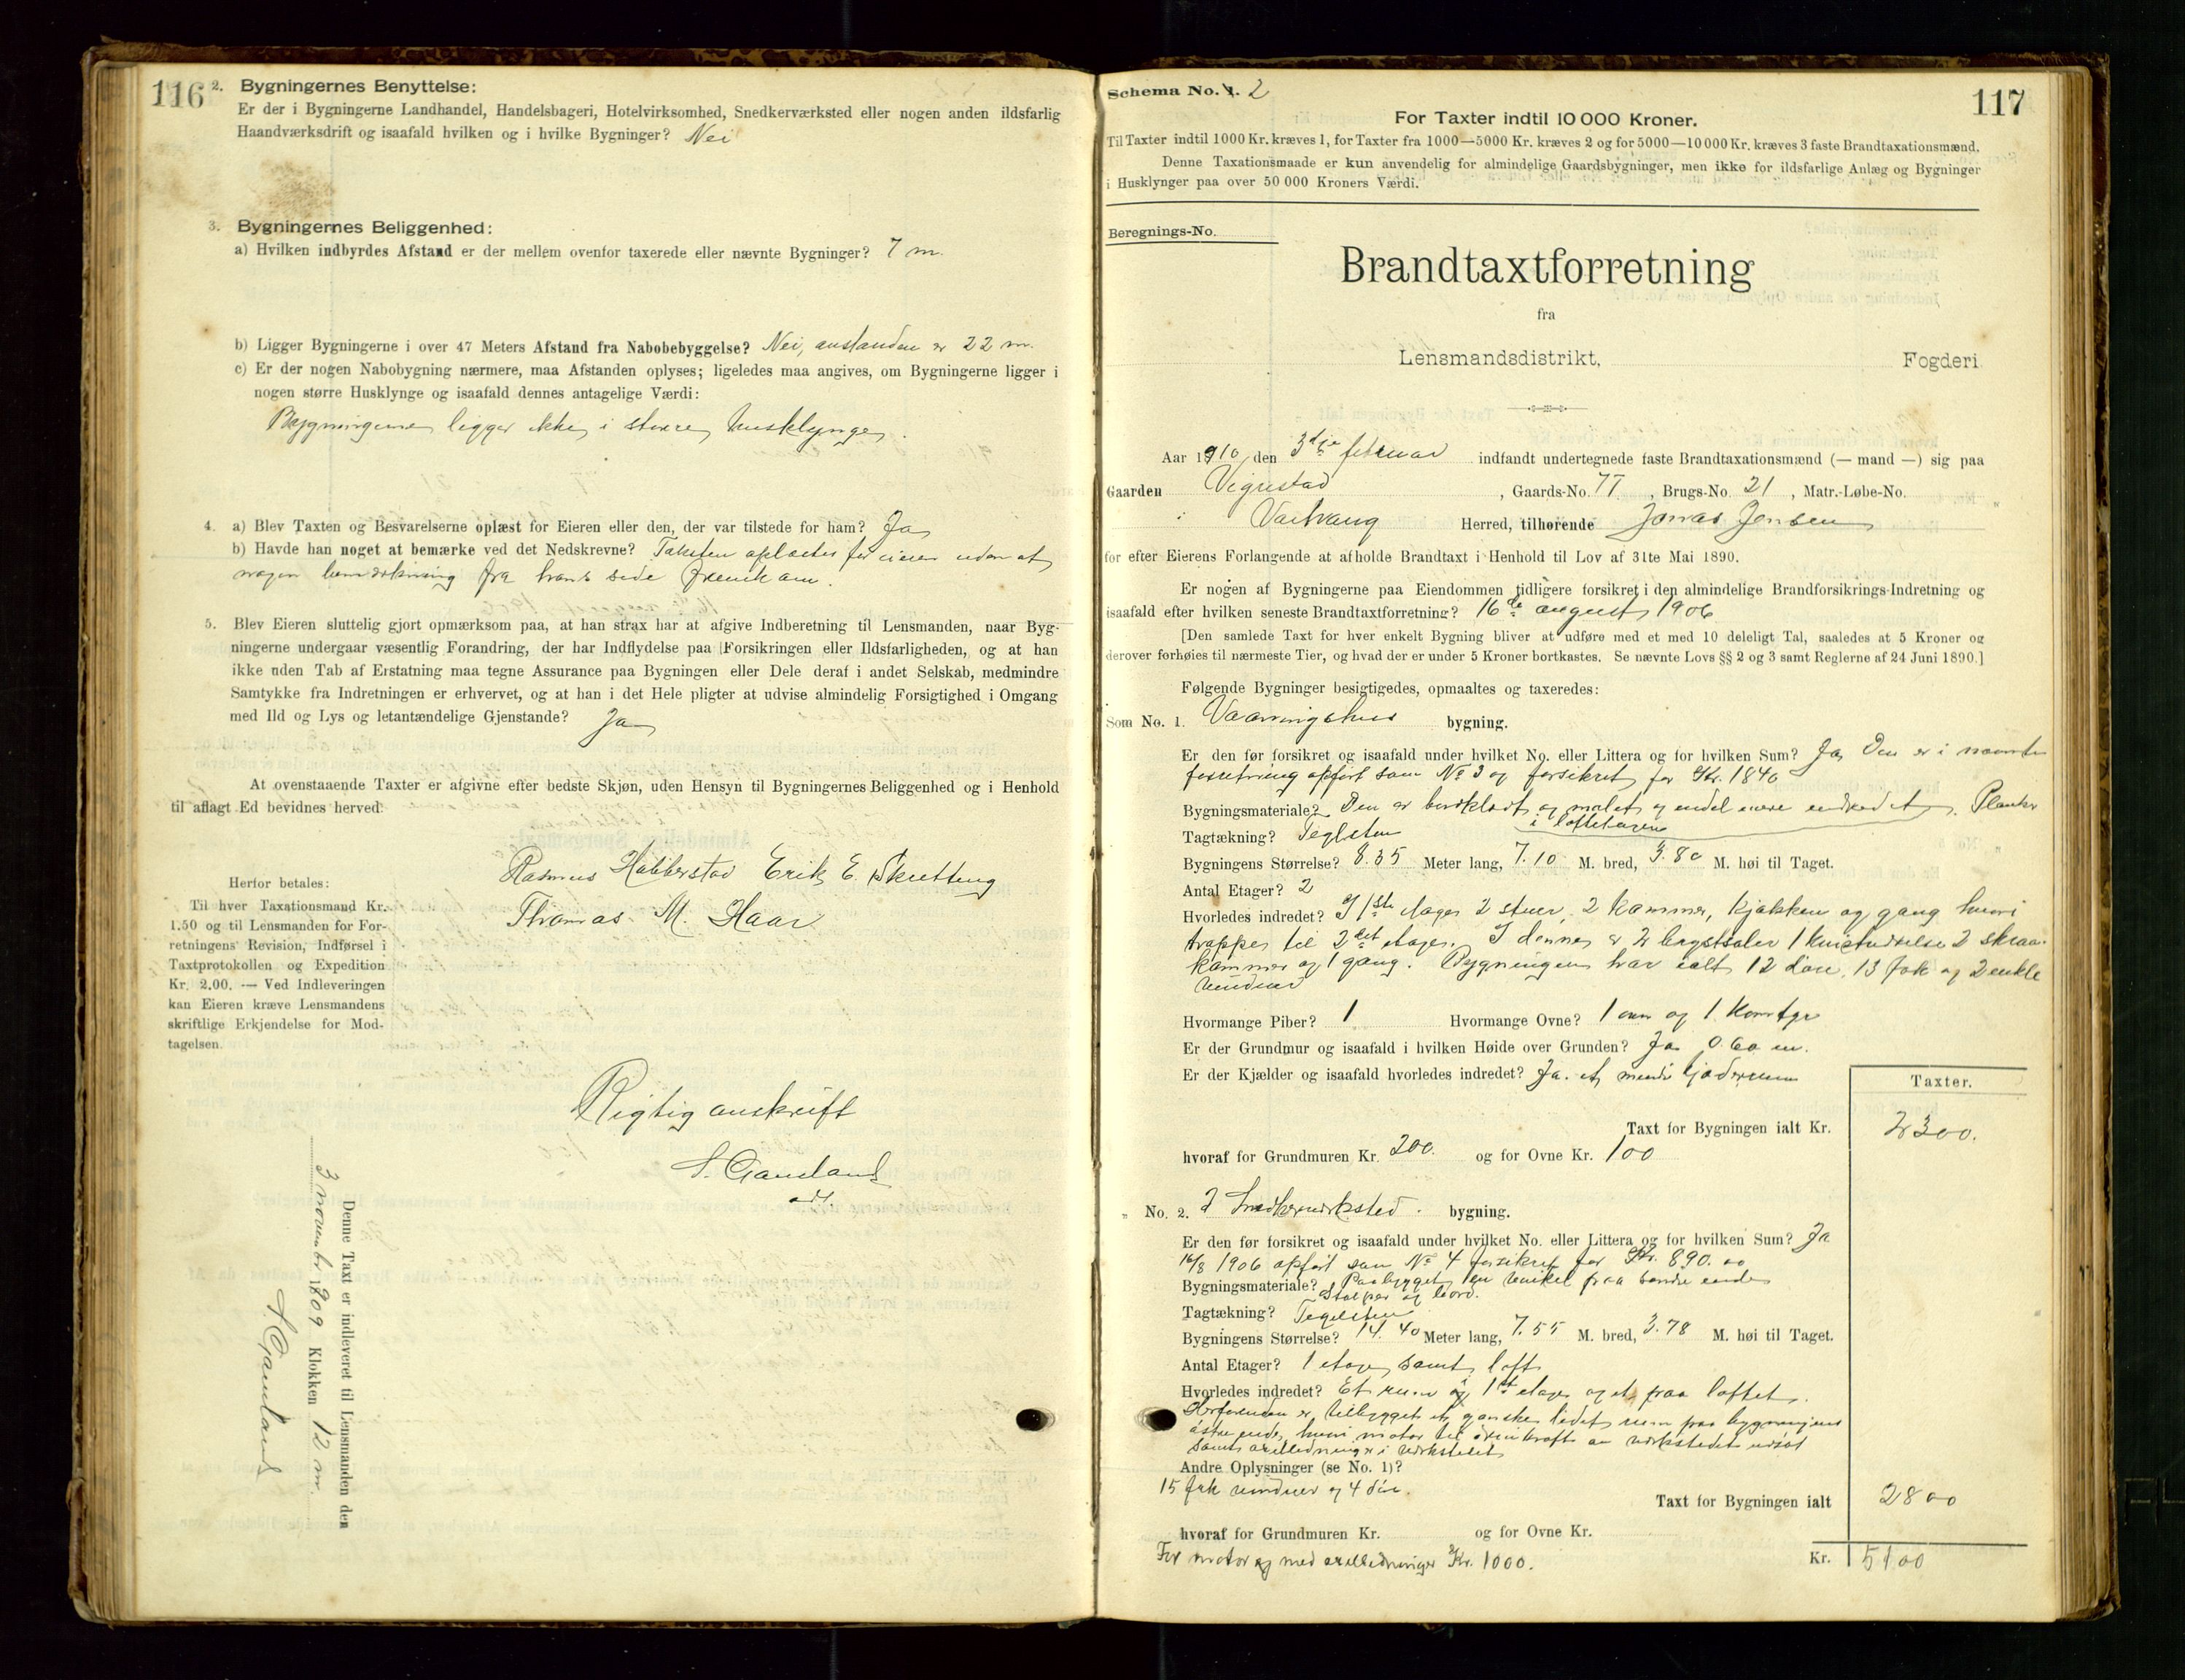 116
2. Bygningernes Benyttelse:
Er der i Bygningerne Landhandel, Handelsbageri, Hotelvirksomhed, Snedkerværksted eller nogen anden ildsfarlig
Haandværksdrift og isaafald hvilken og i hvilke Bygninger? Nei
3. Bygningernes Beliggenhed:
a) Hvilken indbyrdes Afstand er der mellem ovenfor taxerede eller nævnte Bygninger? 7 m.
b) Ligger Bygningerne i over 47 Meters Afstand fra Nabobebyggelse? Nei, avstanden er 22 m.
c) Er der nogen Nabobygning nærmere, maa Afstanden oplyses; ligeledes maa angives, om Bygningerne ligger i
nogen større Husklynge og isaafald dennes antagelige Værdi:
Bygningerne ligger ikke i større husklynge.
4. a) Blev Taxten og Besvarelserne oplæst for Eieren eller den, der var tilstede for ham? Ja
b) Havde han noget at bemærke ved det Nedskrevne? Taksten oplæstes for eieren uden at
nogen bemerkning fra hans side fremkom.
5. Blev Eieren sluttelig gjort opmærksom paa, at han strax har at afgive Indberetning til Lensmanden, naar Byg-
ningerne undergaar væsentlig Forandring, der har Indflydelse paa Forsikringen eller Ildsfarligheden, og at han
ikke uden Tab af Erstatning maa tegne Assurance paa Bygningen eller Dele deraf i andet Selskab, medmindre
Samtykke fra Indretningen er erhvervet, og at han i det Hele pligter at udvise almindelig Forsigtighed i Omgang
med Ild og Lys og letantændelige Gjenstande? Ja
At ovenstaaende Taxter er afgivne efter bedste Skjøn, uden Hensyn til Bygningernes Beliggenhed og i Henhold
til aflagt Ed bevidnes herved:
Rasmus Habberstad Erik E. Skretting
Thomas M. Haar
Herfor betales:
Til hver Taxationsmand Kr.
1.50 og til Lensmanden for For-
retningens Revision, Indførsel i
Taxtprotokollen og Expedition
Kr. 2.00. — Ved Indleveringen
kan Eieren kræve Lensmandens
skriftlige Erkjendelse for Mod-
tagelsen.
Rigtig avskrift
S. Gauland
Denne Taxt er indleveret til Lensmanden den
3 november 1909 Klokken 12 m.
S. Gauland
117
Schema No. 1. 2
For Taxter indtil 10 000 Kroner.
Til Taxter indtil 1000 Kr. kræves 1, for Taxter fra 1000—5000 Kr. kræves 2 og for 5000—10 000 Kr. kræves 3 faste Brandtaxationsmænd.
Denne Taxationsmaade er kun anvendelig for almindelige Gaardsbygninger, men ikke for ildsfarlige Anlæg og Bygninger
i Husklynger paa over 50 000 Kroners Værdi.
Beregnings-No.
Brandtaxtforretning
fra
Lensmandsdistrikt, Fogderi
Aar 1910, den 3dje februar indfandt undertegnede faste Brandtaxationsmænd (— mand —) sig paa
Gaarden Vigrestad, Gaards-No. 77, Brugs-No. 21, Matr.-Løbe-No.
i Varhaug Herred, tilhørende Jonas Jensen
for efter Eierens Forlangende at afholde Brandtaxt i Henhold til Lov af 31te Mai 1890.
Er nogen af Bygningerne paa Eiendommen tidligere forsikret i den almindelige Brandforsikrings-Indretning og
isaafald efter hvilken seneste Brandtaxtforretning? 16de august 1906
[Den samlede Taxt for hver enkelt Bygning bliver at udføre med et med 10 deleligt Tal, saaledes at 5 Kroner og
derover forhøies til nærmeste Tier, og hvad der er under 5 Kroner bortkastes. Se nævnte Lovs §§ 2 og 3 samt Reglerne af 24 Juni 1890.]
Følgende Bygninger besigtigedes, opmaaltes og taxeredes:
Som No. 1. Vaaningshus bygning.
Er den før forsikret og isaafald under hvilket No. eller Littera og for hvilken Sum? Ja Den er i nævnte
forretning opført som No 3 og forsikret for Kr. 1840
Bygningsmateriale? Den er bordklædt og malet og endel mere indredet i loftetagen. Planker
Tagtækning? Teglsten
Bygningens Størrelse? 8.35 Meter lang, 7.10 M. bred, 3.80 M. høi til Taget.
Antal Etager? 2
Hvorledes indredet? I 1ste etage 2 stuer, 2 kammer, kjøkken og gang hvori
trappe til 2det etage. I denne er 2 2 skraa-
kammer og 1 gang. Bygningen har ialt 12 døre, 13 fak og 2 enkle
vinduer
Hvormange Piber? 1 Hvormange Ovne? 1 ovn og 1 komfyr
Er der Grundmur og isaafald i hvilken Høide over Grunden? Ja 0.60 m.
Er der Kjælder og isaafald hvorledes indredet? Ja. et mindre kjælderrum
Taxter.
Taxt for Bygningen ialt Kr. 2300.
hvoraf for Grundmuren Kr. 200. og for Ovne Kr. 100
„ No. 2. 2 Snedkerverksted. bygning.
Er den før forsikret og isaafald under hvilket No. eller Littera og for hvilken Sum? Ja
16/8 1906 opført som No 4 forsikret for Kr. 890.00
Bygningsmateriale? Paabygget en vinkel paa søndre ende
Stolper og bord.
Tagtækning? Teglsten
Bygningens Størrelse? 14.40 Meter lang, 7.55 M. bred, 3.78 M. høi til Taget.
Antal Etager? 1 etage samt loft
Hvorledes indredet? Et rum i 1st etage og et paa loftet.
Herforuden er tilbygget et ganske lidet rum paa bygningens
østre ende, hvori motor til drivkraft av verkstedet
samt axelledninger i verkstedet
Andre Oplysninger (se No. 1)?
15 fak vinduer og 4 dør.
Taxt for Bygningen ialt 2800
hvoraf for Grundmuren Kr. og for Ovne Kr.
For motor og med axelledninger Kr. 1000.
Kr. 5100